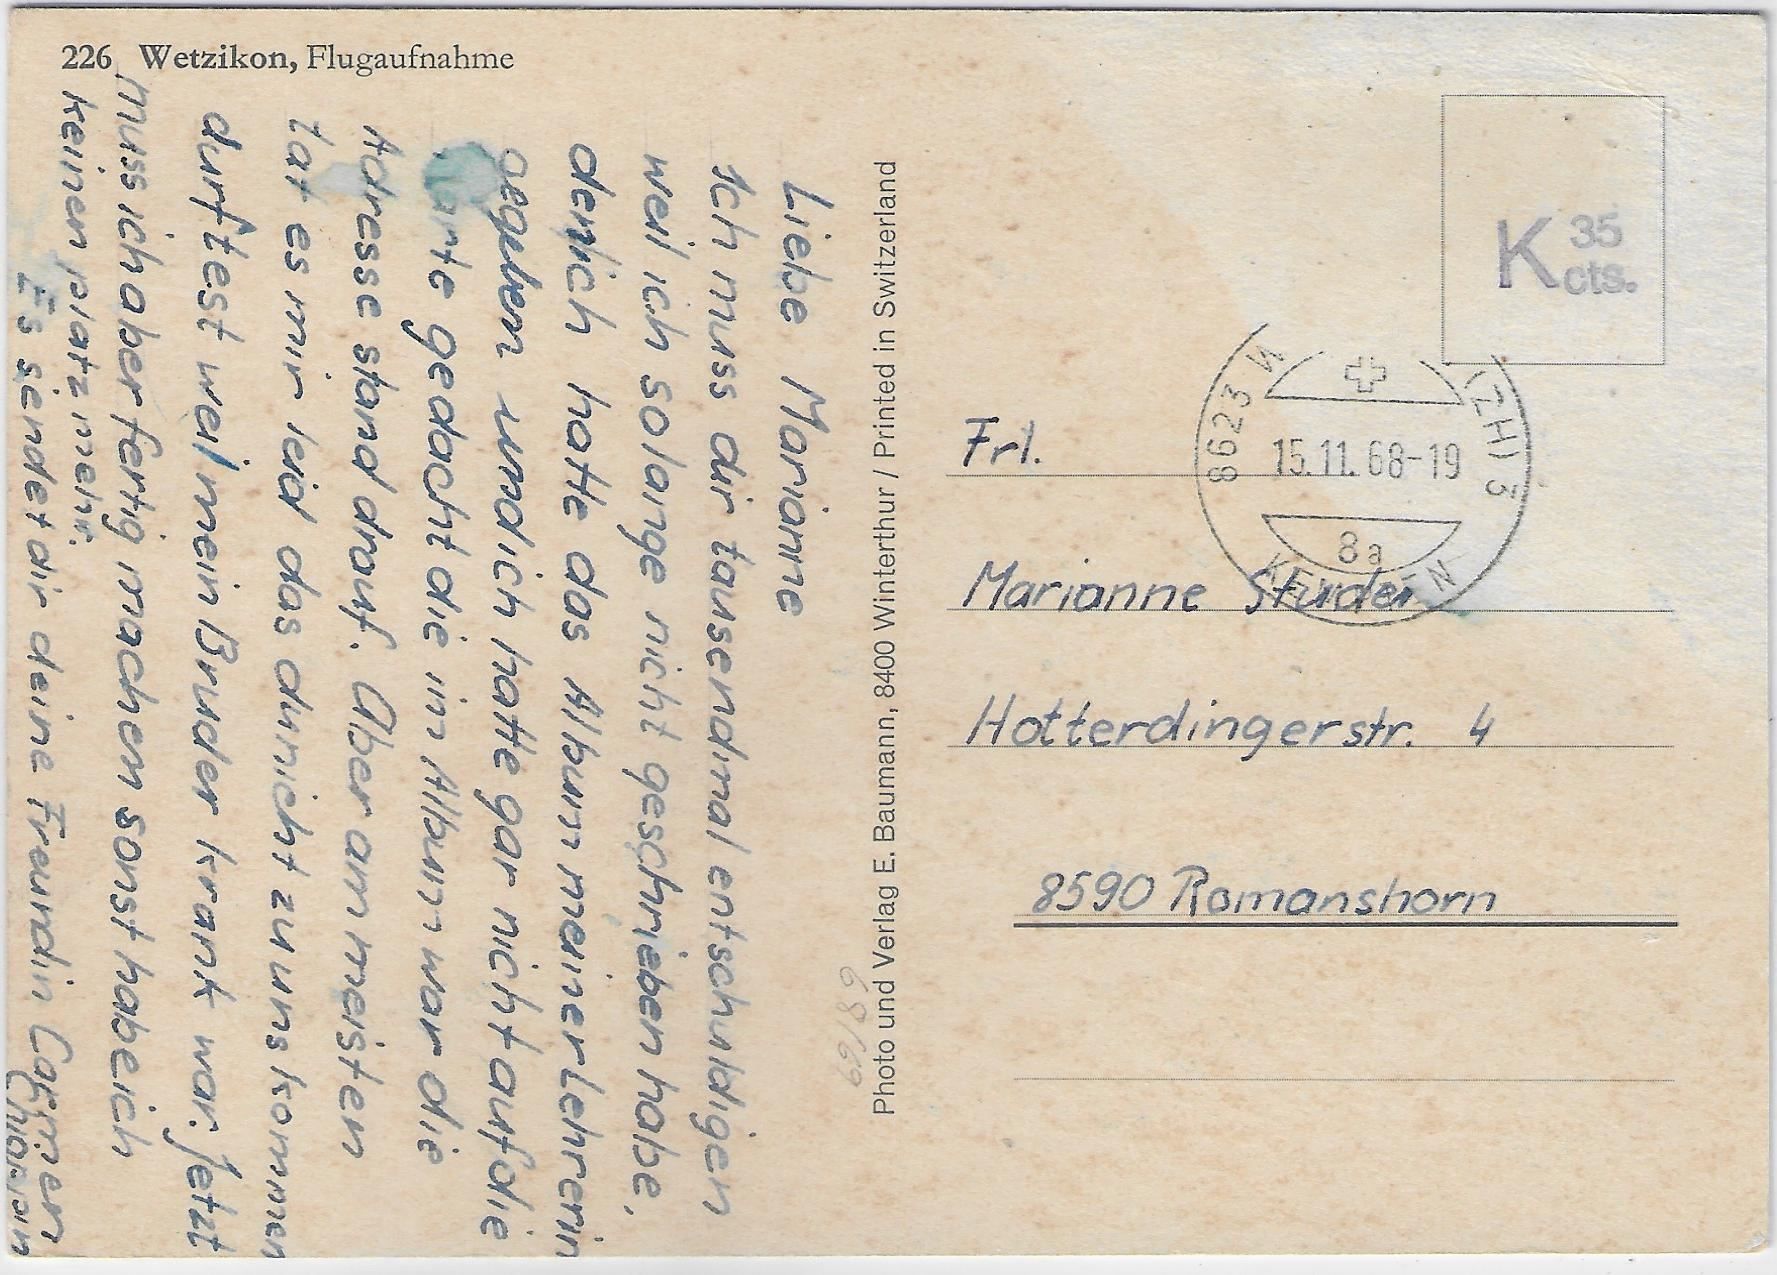 226 Wetzikon, Flugaufnahme
Liebe Marianne
Ich muss dir tausendmal entschuldigen
weil ich solange nicht geschrieben habe,
denn ich hatte das Album meiner Lehrerin
gegeben und ich hatte gar nicht auf die
Karte gedacht die im Album war die
Adresse stand drauf. Aber am meisten
tat es mir leid das du nicht zu uns kommen
durftest weil mein Bruder krank war. Jetzt
muss ich aber fertig machen sonst habe ich
keinen platz mehr.
Es sendet dir deine Freundin Carmen
Photo und Verlag E. Baumann, 8400 Winterthur / Printed in Switzerland
69/89
K 35 cts.
8623 W (ZH) 3
15.11.68-19
8a
Frl.
Marianne Studer
Hotterdingerstr. 4
8590 Romanshorn